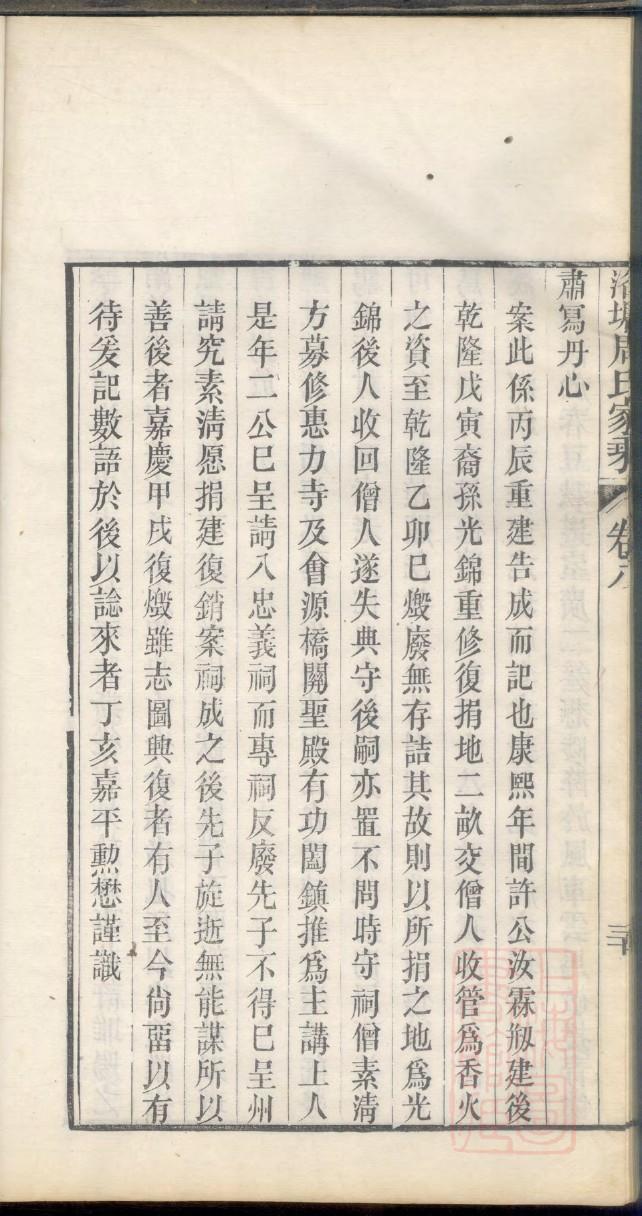 洛塘周氏家乘 卷八 三十
肅寫丹心
案此係丙辰重建告成而記也康熙年間許公汝霖剏建後
乾隆戊寅裔孫光錦重修復捐地二畝交僧人收管爲香火
之資至乾隆乙卯已燬廢無存詰其故則以所捐之地爲光
錦後人收回僧人遂失典守後嗣亦置不問時守祠僧素清
方募修惠力寺及會源橋關聖殿有功闔鎮推爲主講上人
是年二公已呈請入忠義祠而專祠反廢先子不得已呈州
請究素清愿捐建復銷案祠成之後先子旋逝無能謀所以
善後者嘉慶甲戌復燬雖志圖興復者有人至今尙畱以有
待爰記數語於後以誌來者丁亥嘉平勳懋謹識